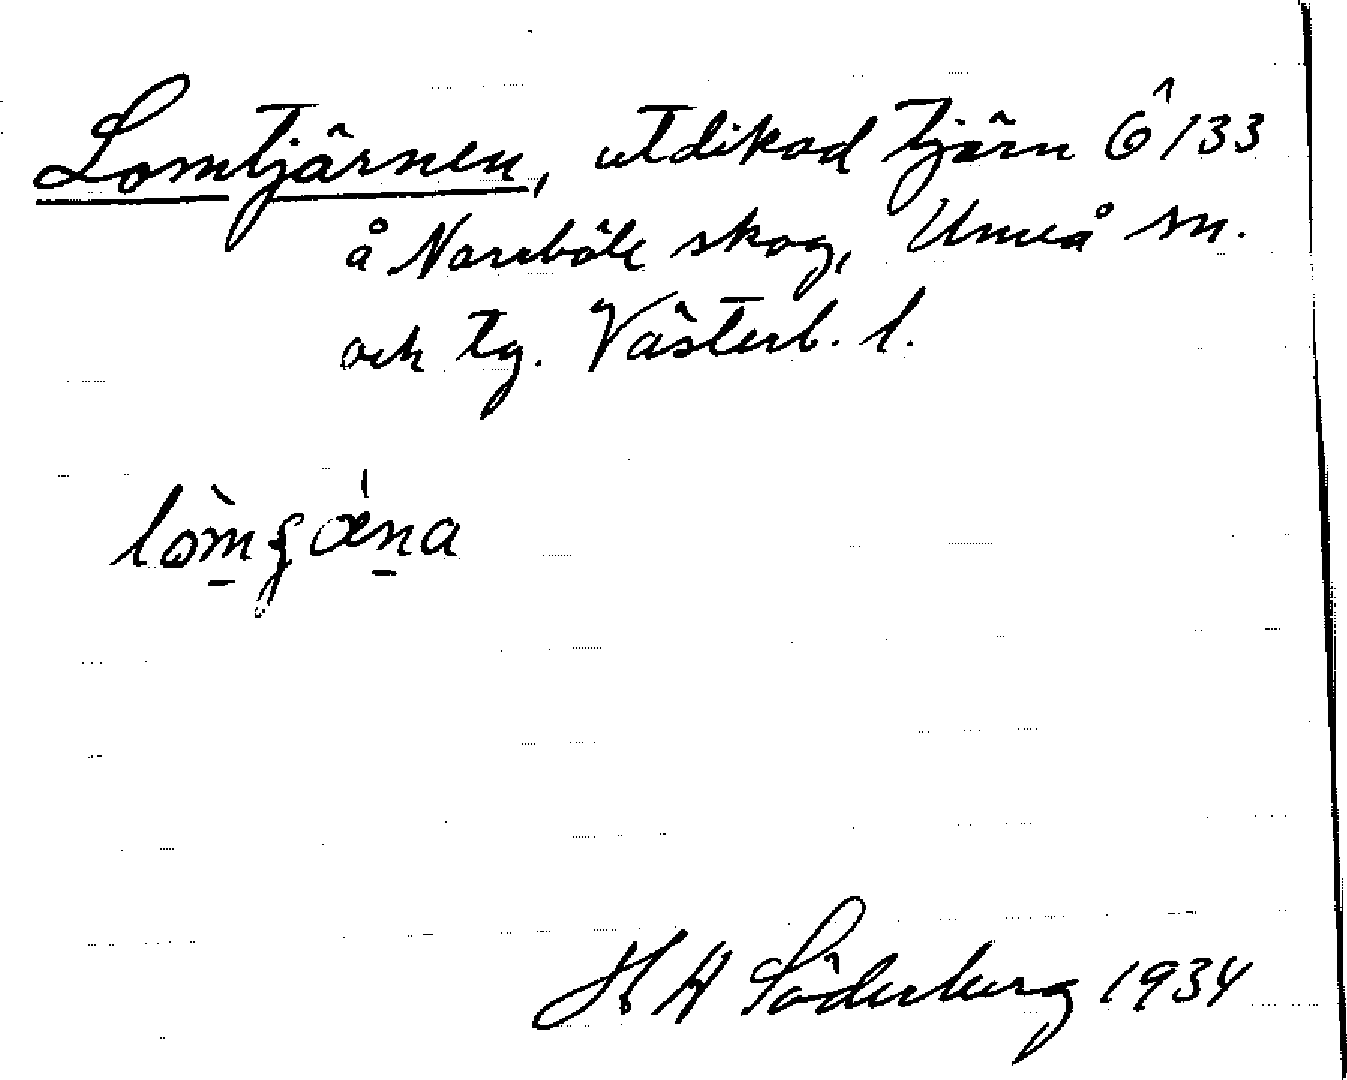 Lomtjärnen, utdikad tjärn 6^/133
å Norrböle skog, Umeå sn.
och tg. Västerb. l.
H W Söderberg 1934